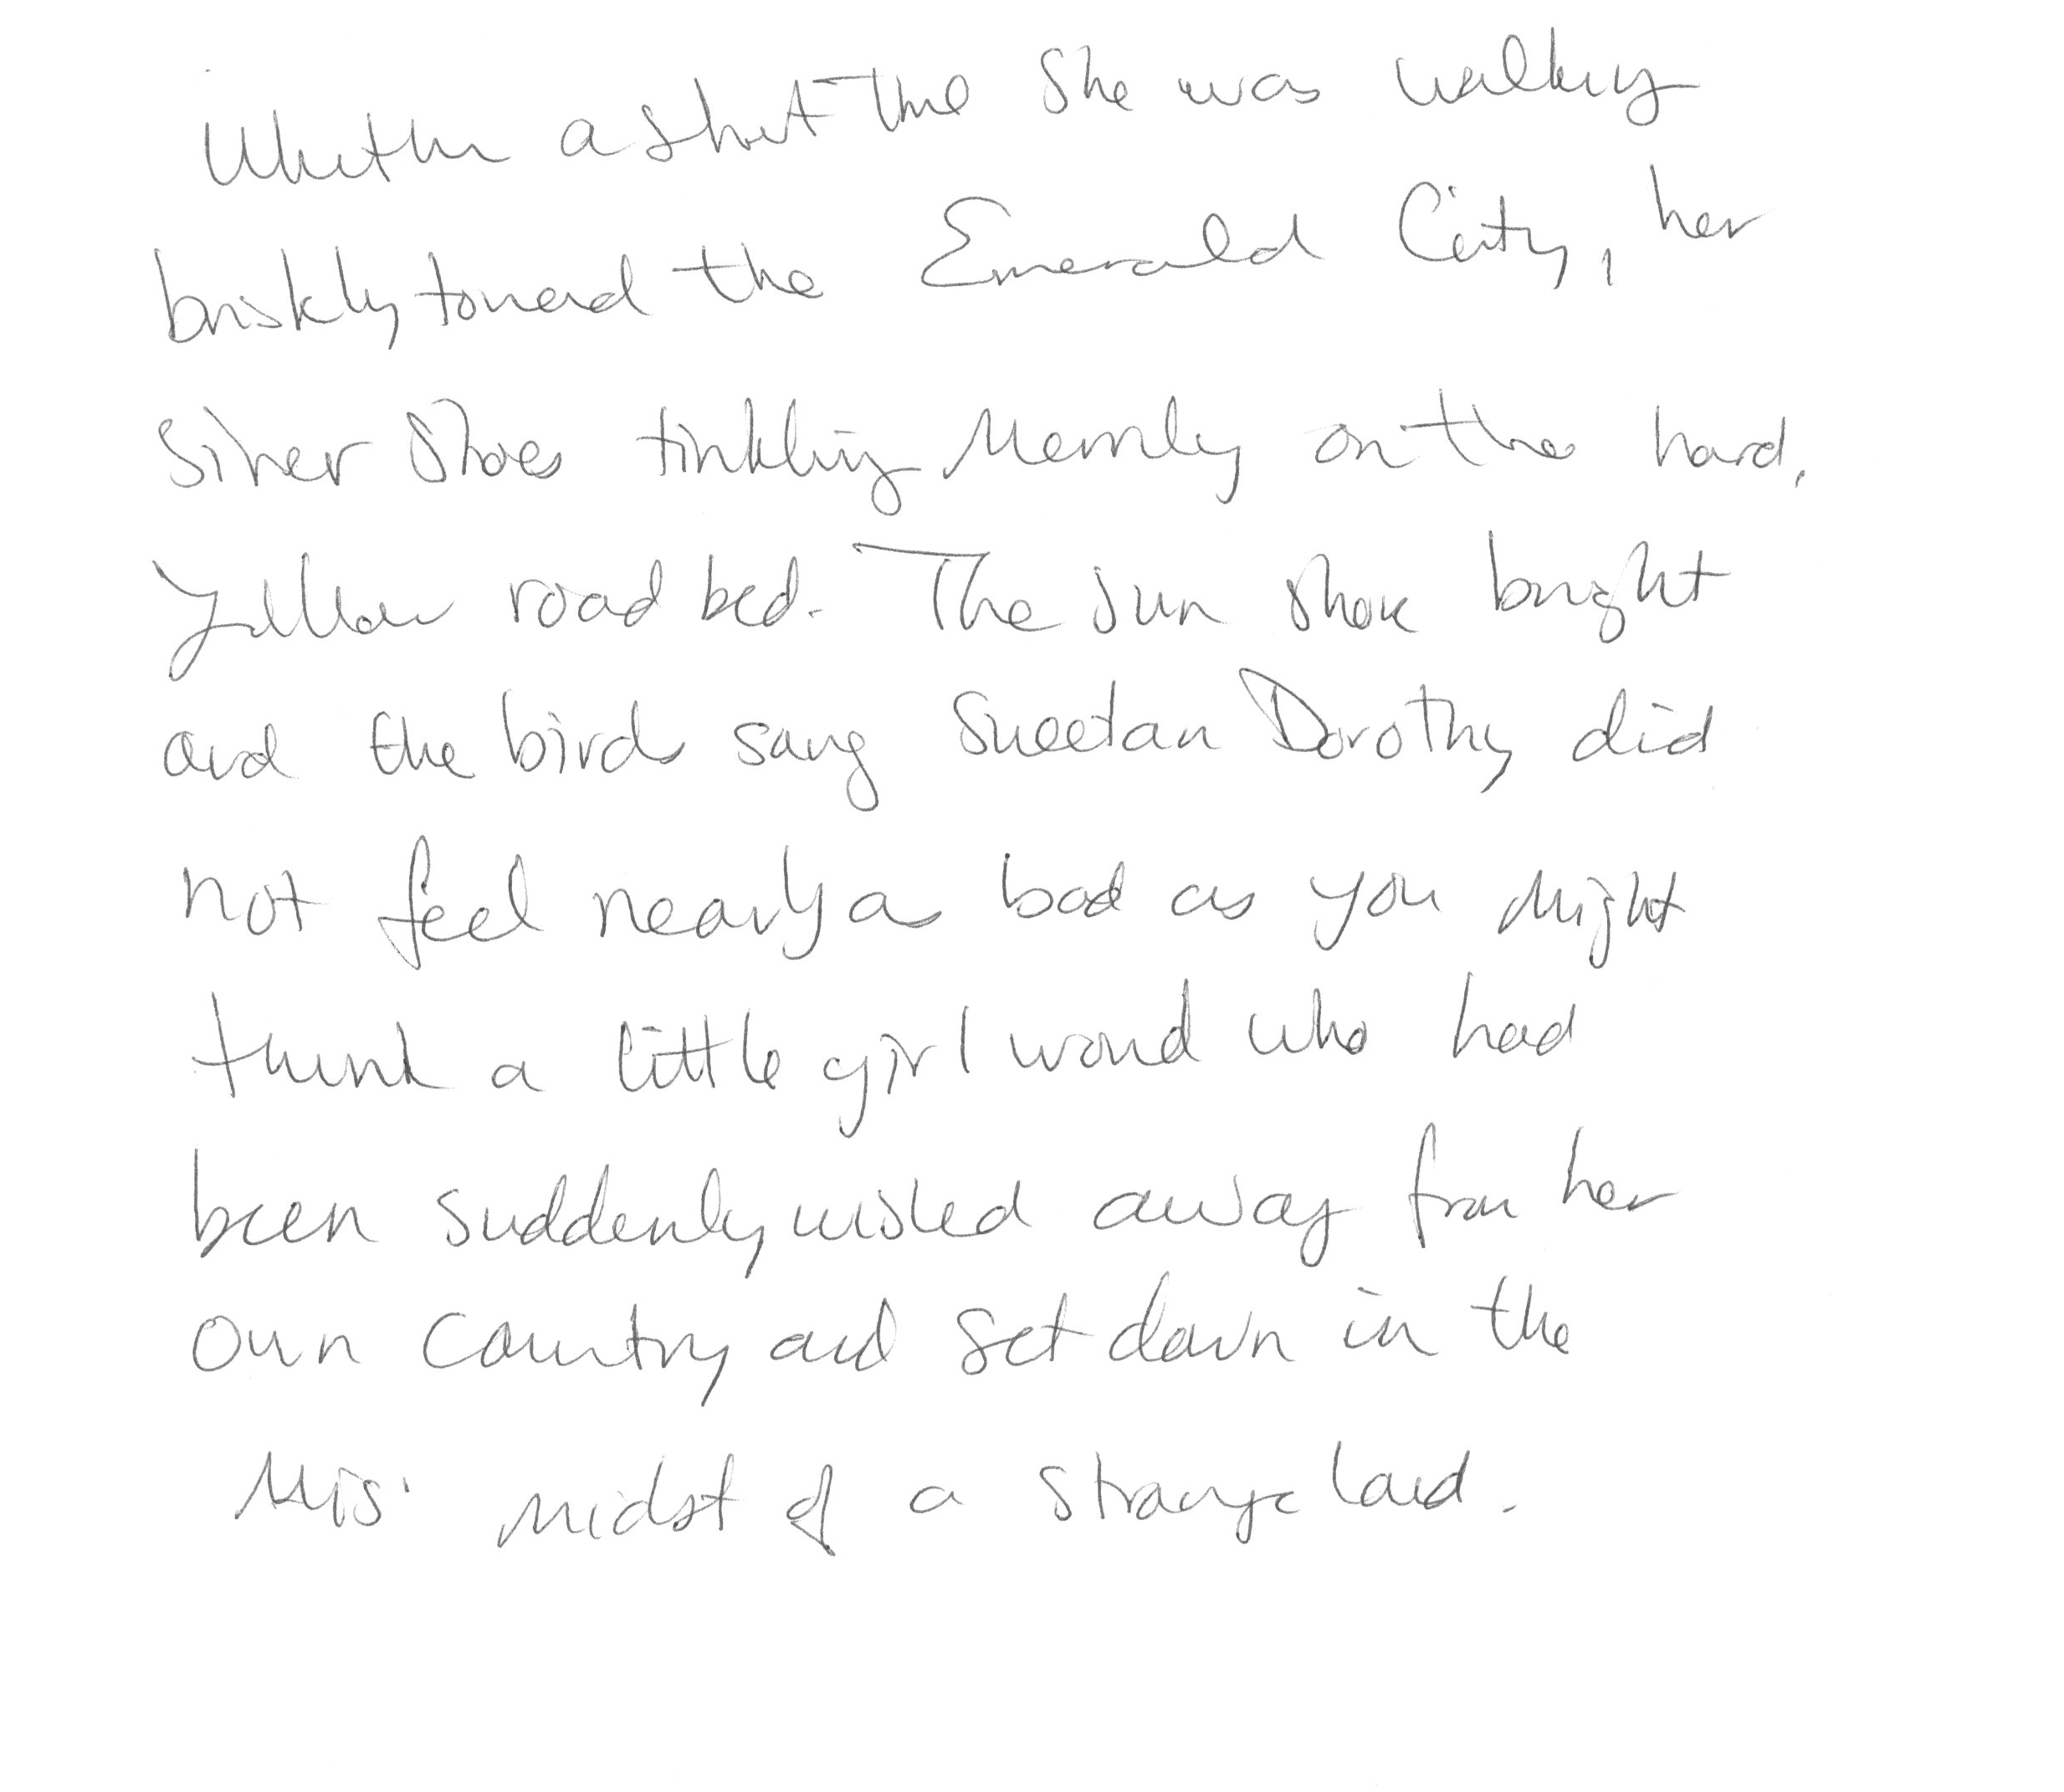 Whithn a short time she was walking
briskly toward the Emerald City, her
Silver Shoes tinkling Merrily on the hard,
yellow road bed. The sun shone bright
and the birds sang Sweet an Dorothy did
not feel nearly as bad as you might
think a little girl would who had
been suddenly wisked away from her
own country and set down in the
Mis midst of a strange land.